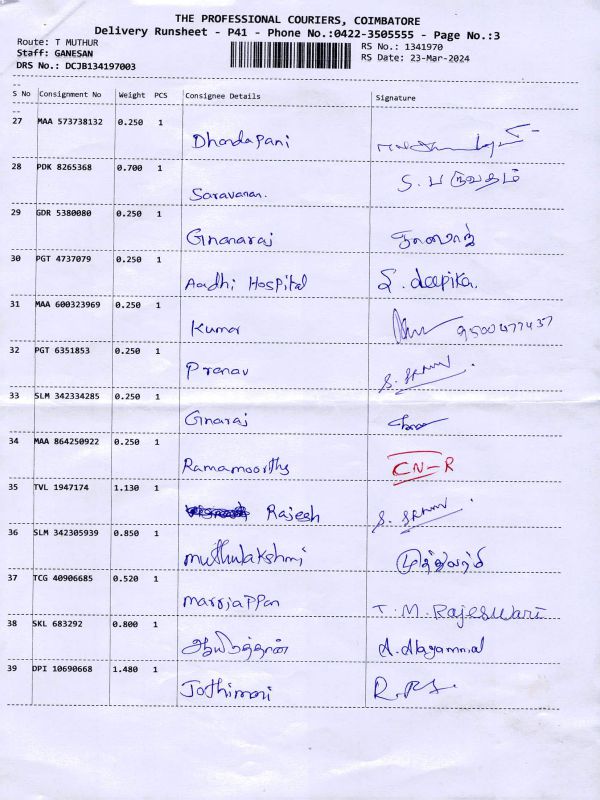 THE PROFESSIONAL COURIERS, COIMBATORE
Delivery Runsheet - P41 - Phone No.:0422-3505555 - Page No.:3
Route: T MUTHUR RS No.: 1341970
Staff: GANESAN RS Date: 23-Mar-2024
DRS No.: DCJB134197003
S No Consignment No Weight PCS Consignee Details Signature
27 MAA 573738132 0.250 1
Dhandapani
28 PDK 8265368 0.700 1
Saravanan.
29 GDR 5380080 0.250 1
Gnanaraj
30 PGT 4737079 0.250 1
Aadhi Hospital S. deepika.
31 MAA 600323969 0.250 1
Kumar 9500477437
32 PGT 6351853 0.250 1
Pranav
33 SLM 342334285 0.250 1
Gnaraj
34 MAA 864250922 0.250 1
Ramamoorthy CN-R
35 TVL 1947174 1.130 1
Rajesh
36 SLM 342305939 0.850 1
muthulakshmi
37 TCG 40906685 0.520 1
marrjappan T. M. Rajeswari
38 SKL 683292 0.800 1
39 DPI 10690668 1.480 1
Jothimani